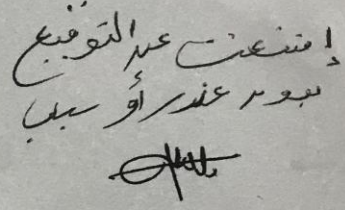 إمتنعت عن التوقيع
بدون عذر أو سبب